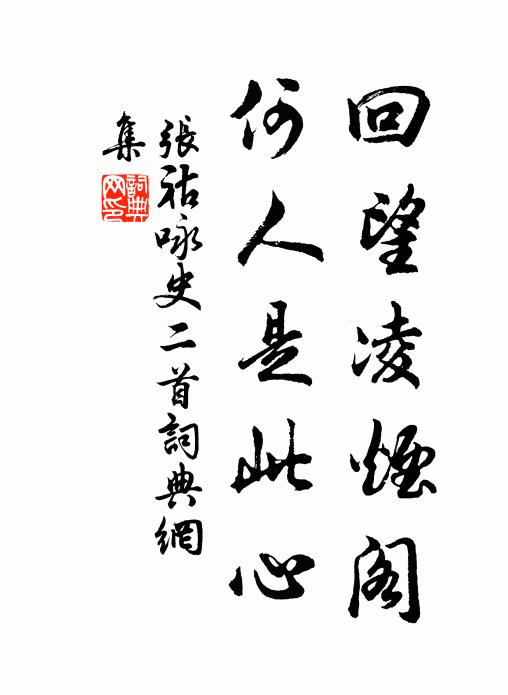 回望凌煙阁
何人是此心
張祜咏史二首詞典網
集
詞典
网印